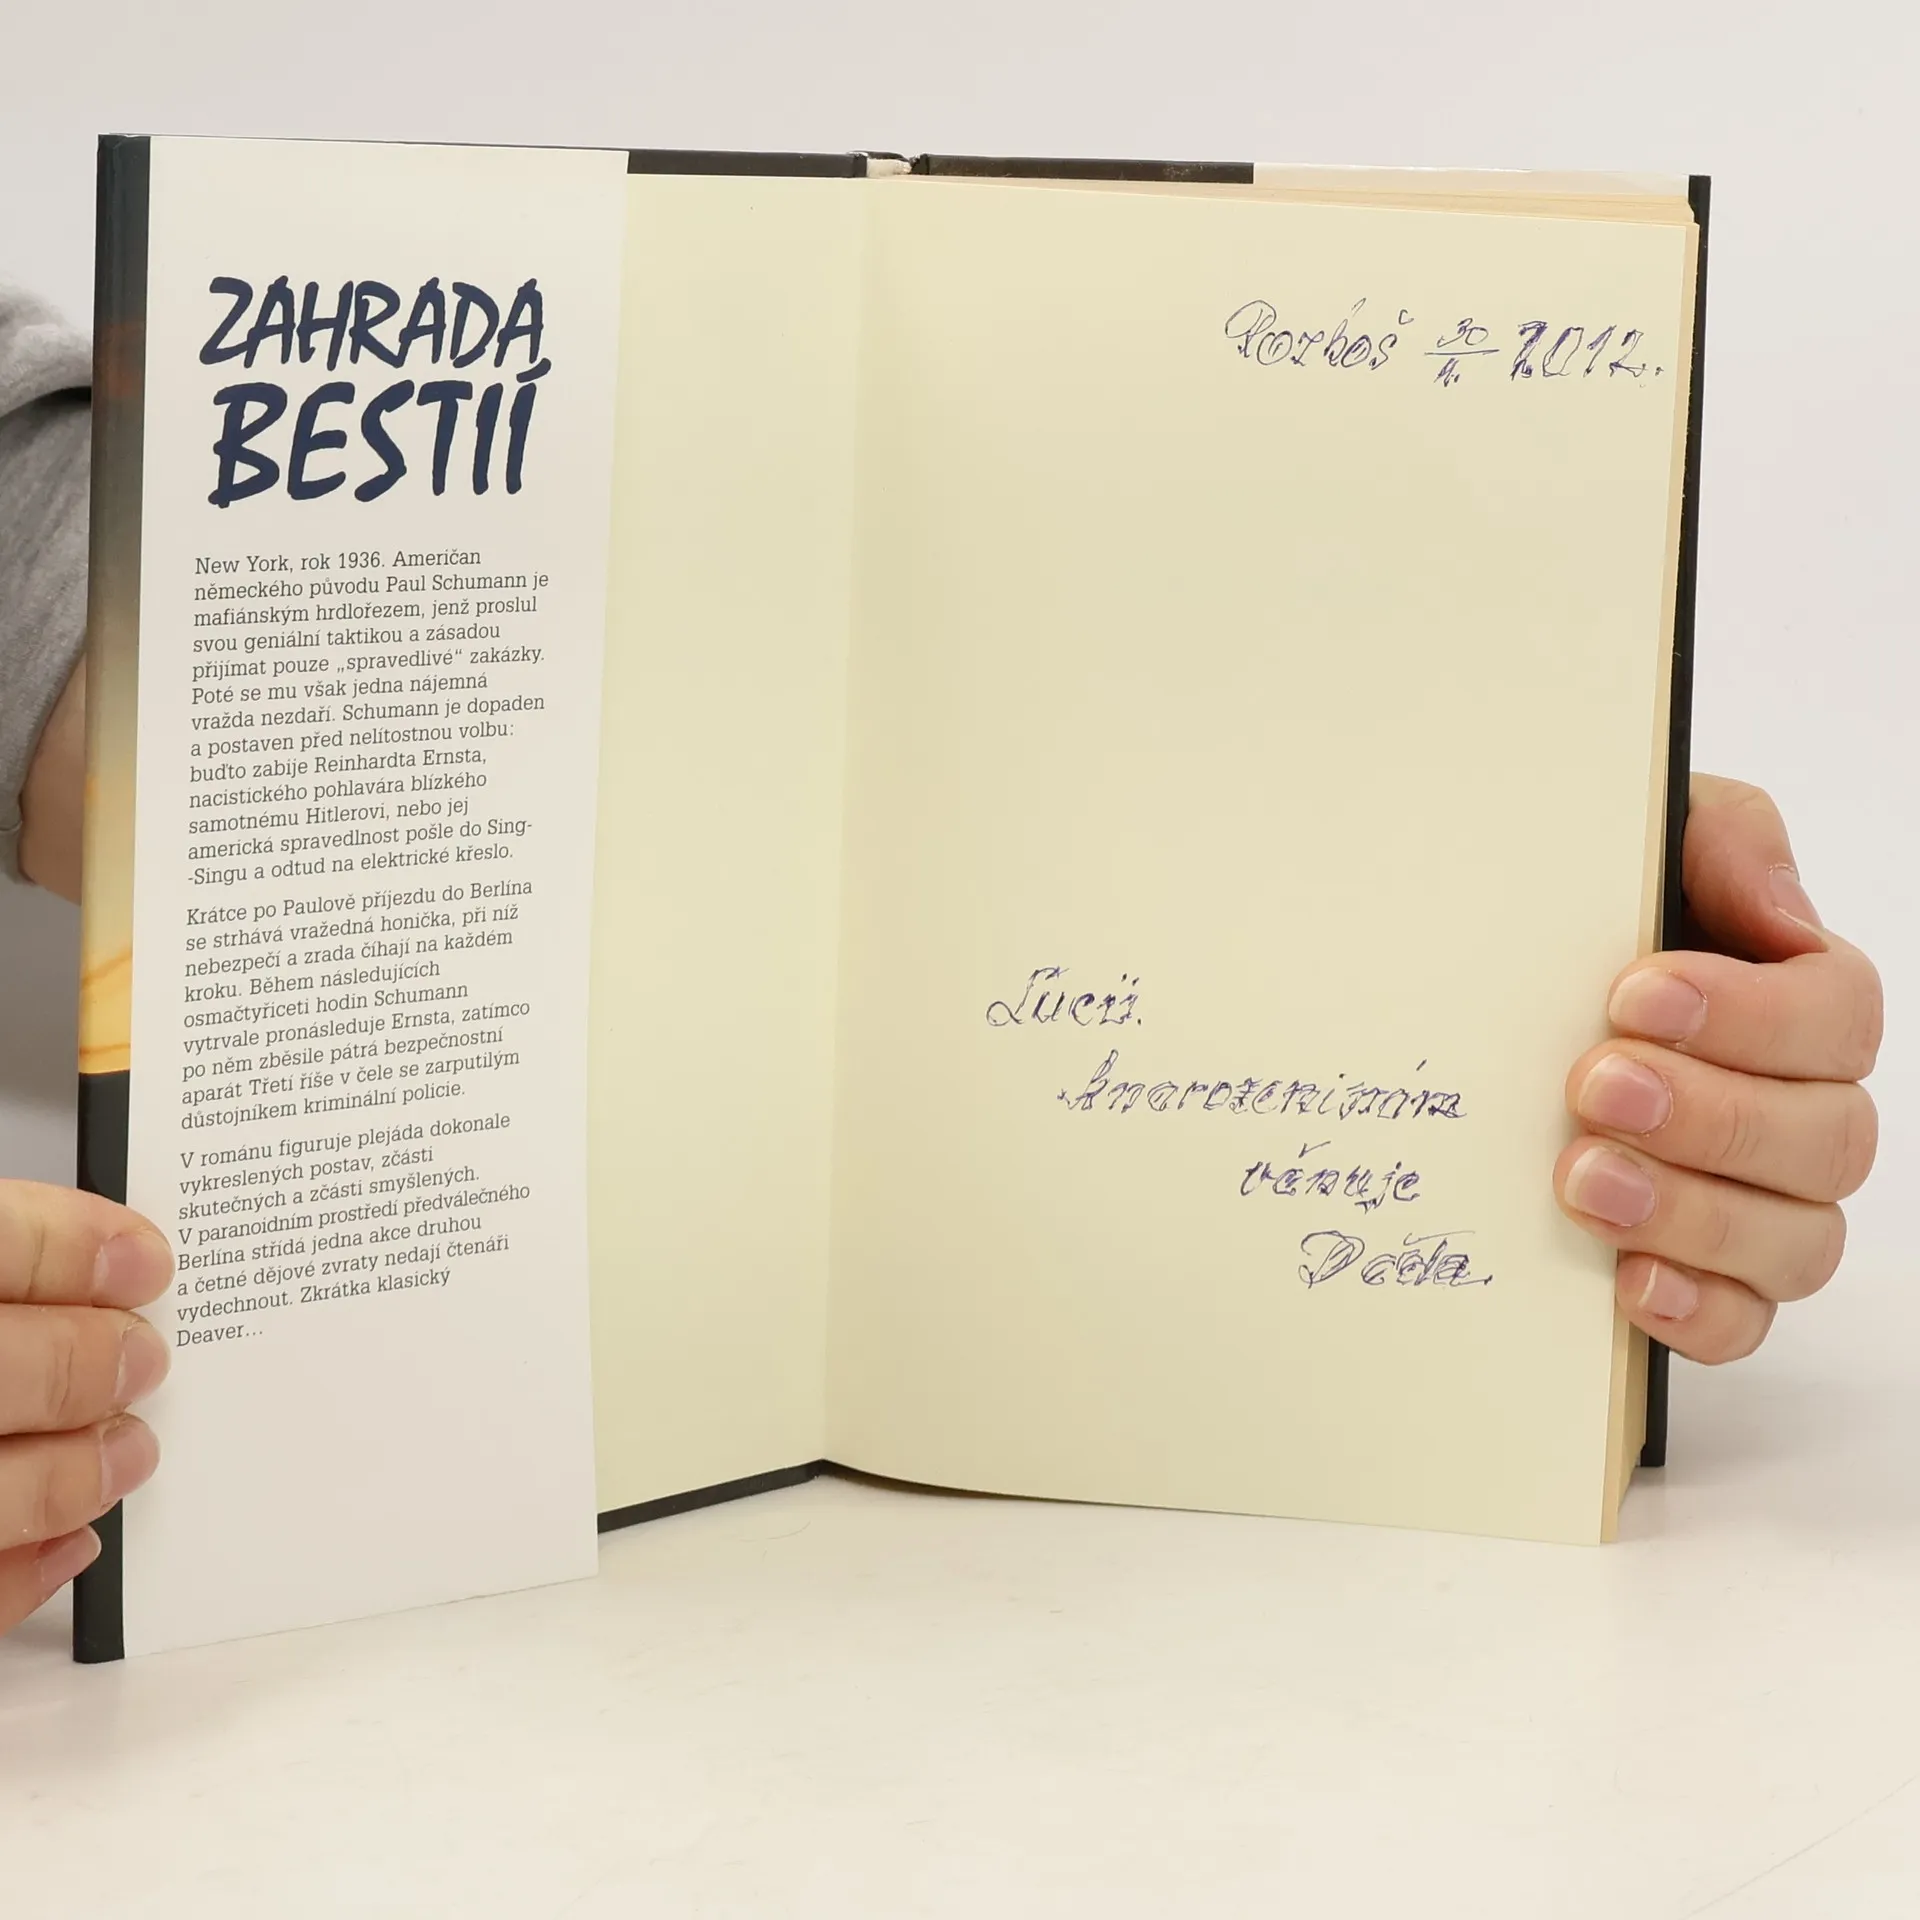 ZAHRADA
BESTIÍ
New York, rok 1936. Američan
německého původu Paul Schumann je
mafiánským hrdlořezem, jenž proslul
svou geniální taktikou a zásadou
přijímat pouze „spravedlivé“ zakázky.
Poté se mu však jedna nájemná
vražda nezdaří. Schumann je dopaden
a postaven před nelítostnou volbu:
buďto zabije Reinhardta Ernsta,
nacistického pohlavára blízkého
samotnému Hitlerovi, nebo jej
americká spravedlnost pošle do Sing-
-Singu a odtud na elektrické křeslo.
Krátce po Paulově příjezdu do Berlína
se strhává vražedná honička, při níž
nebezpečí a zrada číhají na každém
kroku. Během následujících
osmačtyřiceti hodin Schumann
vytrvale pronásleduje Ernsta, zatímco
po něm zběsile pátrá bezpečnostní
aparát Třetí říše v čele se zarputilým
důstojníkem kriminální policie.
V románu figuruje plejáda dokonale
vykreslených postav, zčásti
skutečných a zčásti smyšlených.
V paranoidním prostředí předválečného
Berlína střídá jedna akce druhou
a četné dějové zvraty nedají čtenáři
vydechnout. Zkrátka klasický
Deaver...
Rozkoš 30 2012.
Lucii.
k narozeninám
věnuje